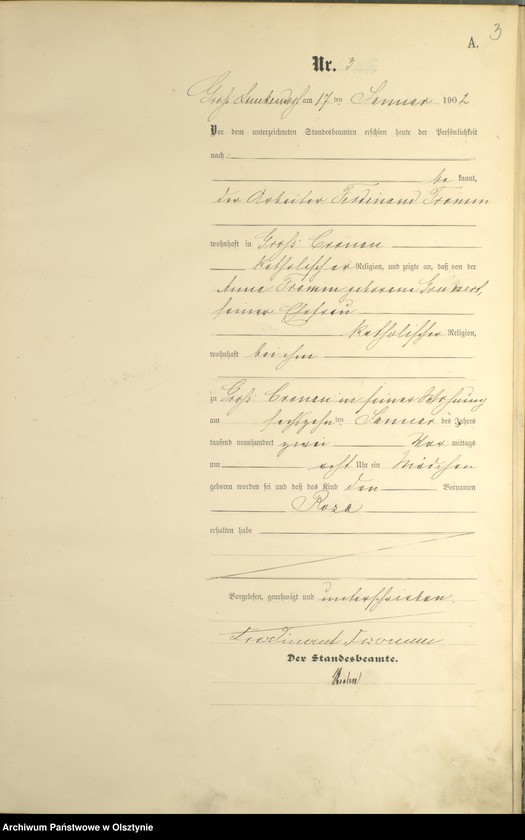 3
A.
Nr. 3
Groß am 17 ten Januar 1902
Vor dem unterzeichneten Standesbeamten erschien heute der Persönlichkeit
nach
be kannt,
der Arbeiter Ferdinand Fromm
wohnhaft in Groß Cronau
katholischer Religion, und zeigte an, daß von der
Anna Fromm geborene
seiner Ehefrau
katholischer Religion,
wohnhaft bei ihm
zu Groß Cronau in seiner Wohnung
am sechszehn ten Januar des Jahres
tausend neunhundert zwei Vor mittags
um acht Uhr ein Mädchen
geboren worden sei und daß das Kind den Vornamen
Rosa
erhalten habe
Vorgelesen, genehmigt und unterschrieben.
Ferdinant Fromm
Der Standesbeamte.
Archiwum Państwowe w Olsztynie